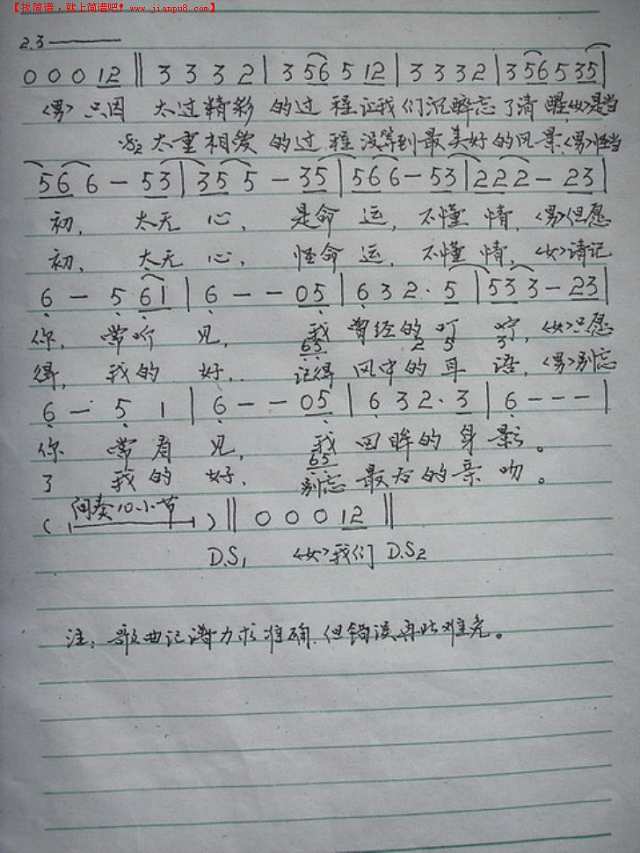 【找简谱，就上简谱吧！www.jianpu8.com】
2.3
0 0 0 12 ‖ 3 3 3 2 | 3 56 5 12 | 3 3 3 2 | 3 56 5 35 |
<男> 只因 太过精彩 的过 程让我们沉醉忘了清醒<女>是当
𝄋2 太重相爱 的过 程没等到最美好的风景<男>怪当
56 6 - 53 | 35 5 - 35 | 56 6 - 53 | 22 2 - 23 |
初， 太无 心， 是命 运，不懂 情，<男>但愿
初， 太无 心， 怪命 运，不懂 情，<女>请记
6 - 5 61 | 6 - - 05 | 6 3 2 · 5 | 53 3 - 23 |
你，常听 见， 我 曾经的 叮 咛，<女>只愿
65 2 5 3
得，我的 好， 记得 风中的 耳 语，<男>别忘
6 - 5 1 | 6 - - 05 | 6 3 2 · 3 | 6 - - - |
你 常看 见， 我 回眸的身影。
65
了 我的 好， 别忘 最后的亲吻。
( 间奏10小节 ) ‖ 0 0 0 12 ‖
D.S1 <女>我们 D.S2
注：歌曲记谱力求准确，但错误再此难免。